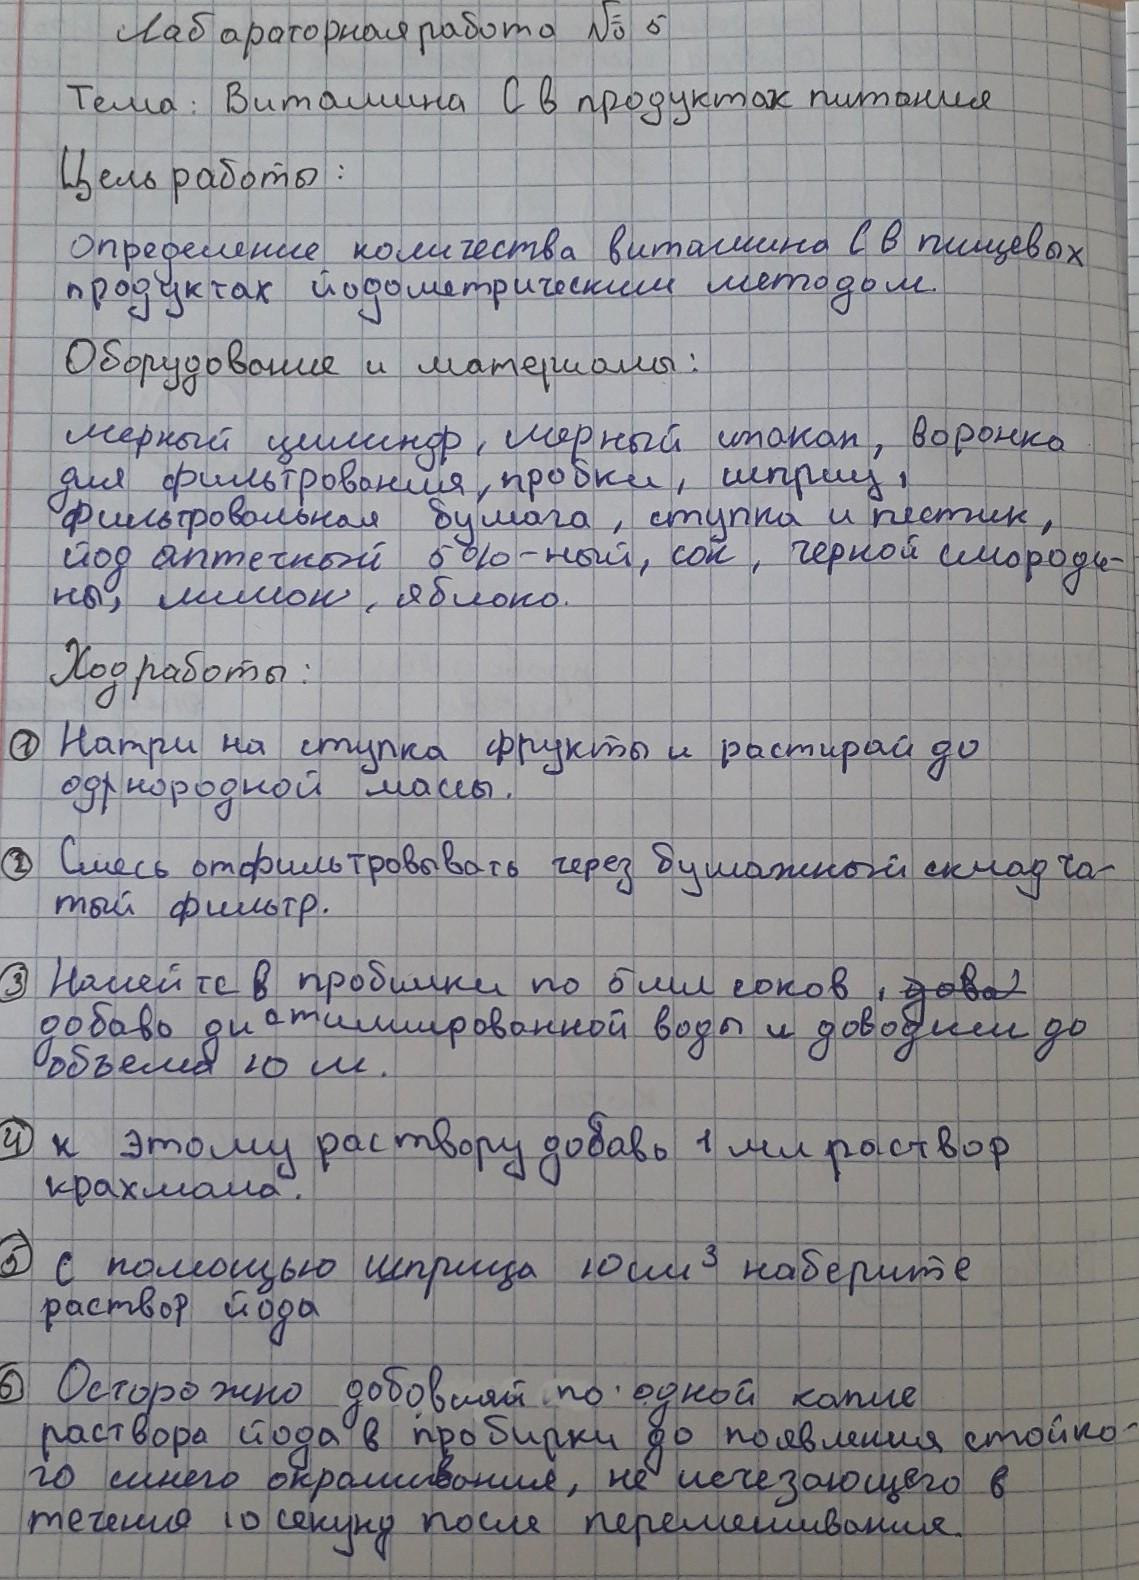 Лабараторная работа № 5
Тема: Витамина С в продуктах питания
Цель работы:
определение количества витамина С в пищевых
продуктах йодометрическим методом.
Оборудование и материалы:
мерный цилиндр, мерный стакан, воронка
для фильтрования, пробки, шприц,
фильтровальная бумага, ступка и пестик,
йод аптечный 5%-ный, сок, черной смороди-
ны, лимон, яблоко.
Ход работы:
① Натри на ступка фрукты и растирай до
однородной массы.
② Смесь отфильтровывать через бумажный складча-
тый фильтр.
③ Налейте в пробирки по 5 мл соков,
добавь дистиллированной воды и доводим до
объема 10 м.
④ к этому раствору добавь 1 мл раствор
крахмала.
⑤ с помощью шприца 10 см³ наберите
раствор йода
⑥ Осторожно добовляй по одной капле
раствора йода в пробирки до появления стойко-
го синего окрашивания, не исчезающего в
течения 10 секунд после перемешивания.